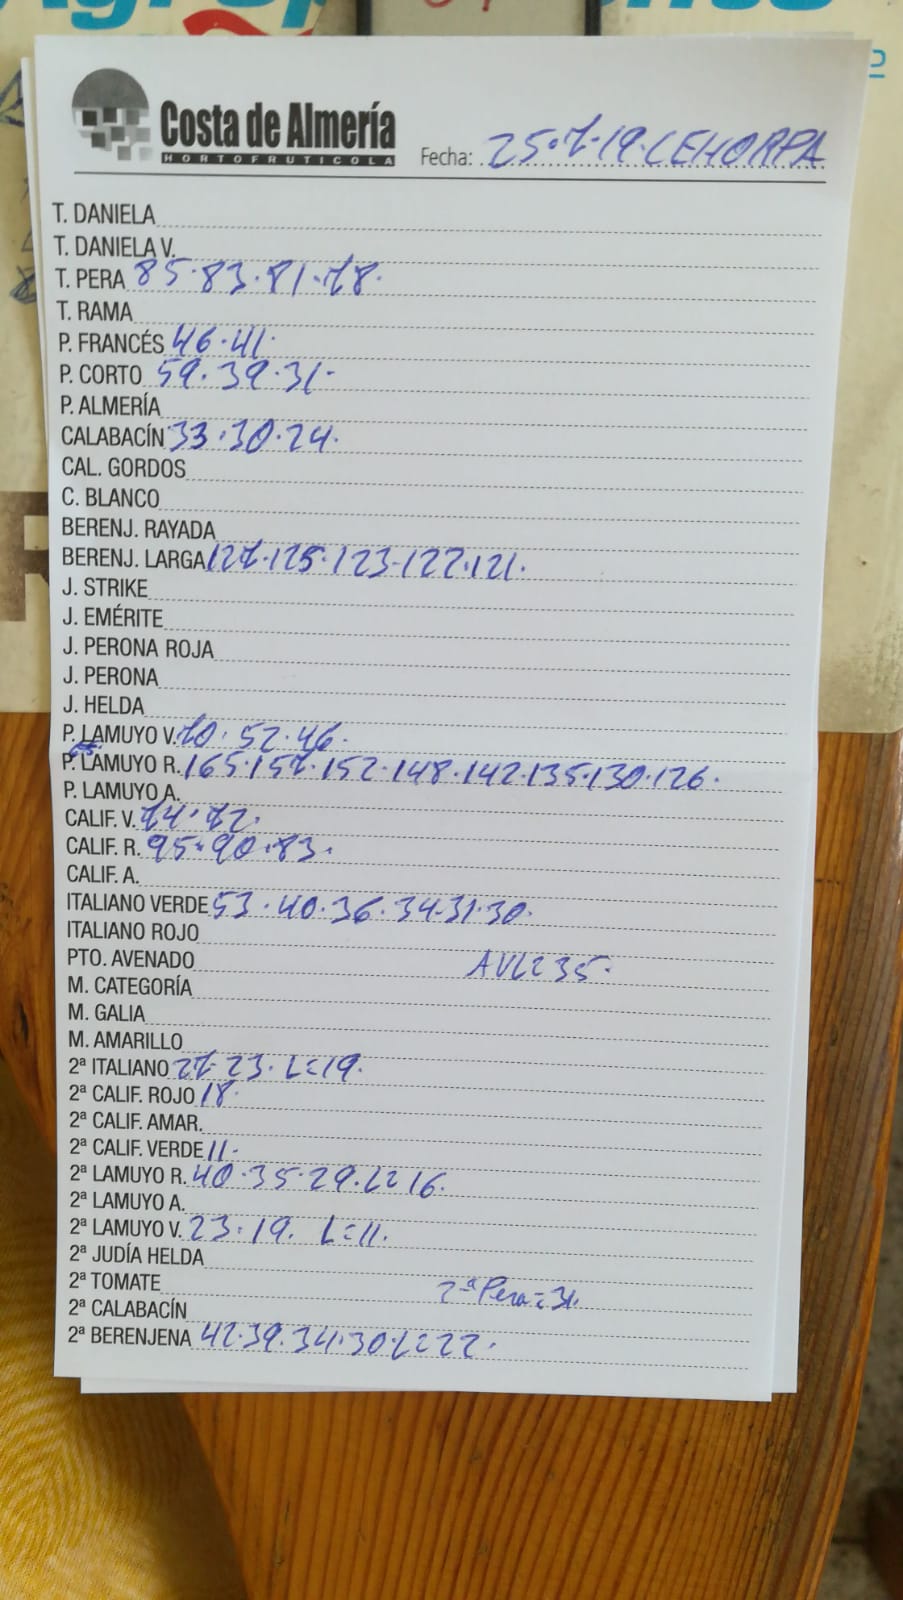 Costa de Almería
HORTOFRUTICOLA
Fecha: 25·7·19·CEHORPA
T. DANIELA
T. DANIELA V.
T. PERA 85·83·81·78·
T. RAMA
P. FRANCÉS 46·41·
P. CORTO 59·39·31·
P. ALMERÍA
CALABACÍN 33·30·24·
CAL. GORDOS
C. BLANCO
BERENJ. RAYADA
BERENJ. LARGA 127·125·123·122·121·
J. STRIKE
J. EMÉRITE
J. PERONA ROJA
J. PERONA
J. HELDA
P. LAMUYO V. 70·52·46·
P. LAMUYO R. 165·157·152·148·142·135·130·126·
P. LAMUYO A.
CALIF. V. 74·72·
CALIF. R. 95·90·83·
CALIF. A.
ITALIANO VERDE 53·40·36·34·31·30·
ITALIANO ROJO
PTO. AVENADO AVL=35·
M. CATEGORÍA
M. GALIA
M. AMARILLO
2ª ITALIANO 27·23·L=19·
2ª CALIF. ROJO 18·
2ª CALIF. AMAR.
2ª CALIF. VERDE 11·
2ª LAMUYO R. 40·35·29·L=16·
2ª LAMUYO A.
2ª LAMUYO V. 23·19· L=11·
2ª JUDÍA HELDA
2ª TOMATE 2ª Pera=31·
2ª CALABACÍN
2ª BERENJENA 42·39·34·30·L=22·